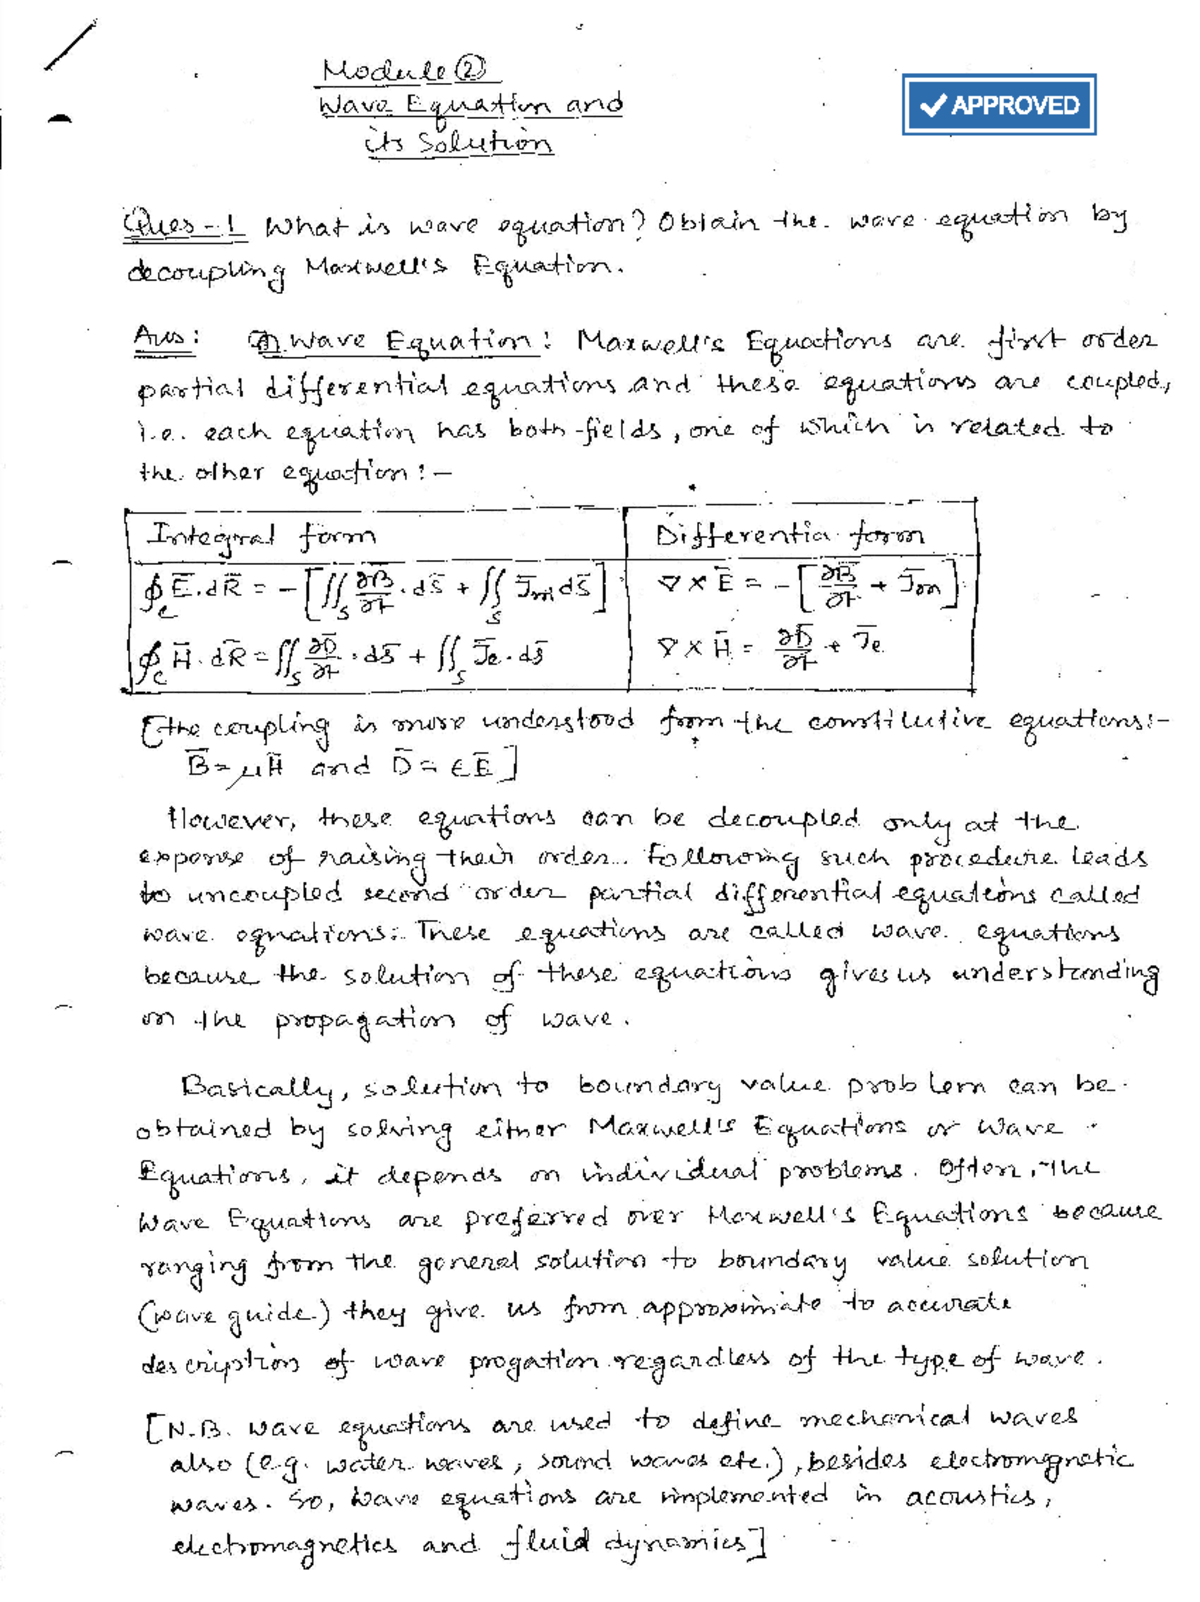 Module ②
Wave Equation and
its Solution
✓ APPROVED
Ques-1 What is wave equation? Obtain the wave equation by
decoupling Maxwell's Equation.
Ans: Wave Equation: Maxwell's Equations are first order
partial differential equations and these equations are coupled,
i.e. each equation has both fields, one of which is related to
the other equation:-
Integral form | Differentia form
∮_C Ē.dR̄ = -[∬_S ∂B̄/∂t . dS̄ + ∬_S J̄m dS̄] | ∇ × Ē = -[∂B̄/∂t + J̄m]
∮_C H̄.dR̄ = ∬_S ∂D̄/∂t . dS̄ + ∬_S J̄e . dS̄ | ∇ × H̄ = ∂D̄/∂t + J̄e
[the coupling is more understood from the constitutive equations:-
B̄ = μH̄ and D̄ = ϵĒ]
However, these equations can be decoupled only at the
expense of raising their order. Following such procedure leads
to uncoupled second order partial differential equations called
wave equations. These equations are called wave equations
because the solution of these equations gives us understanding
on the propagation of wave.
Basically, solution to boundary value problem can be
obtained by solving either Maxwell's Equations or Wave
Equations, it depends on individual problems. Often, the
Wave Equations are preferred over Maxwell's Equations because
ranging from the general solution to boundary value solution
(wave guide) they give us from approximate to accurate
description of wave progation regardless of the type of wave.
[N.B. Wave equations are used to define mechanical waves
also (e.g. water waves, sound waves etc.), besides electromagnetic
waves. So, wave equations are implemented in acoustics,
electromagnetics and fluid dynamics]